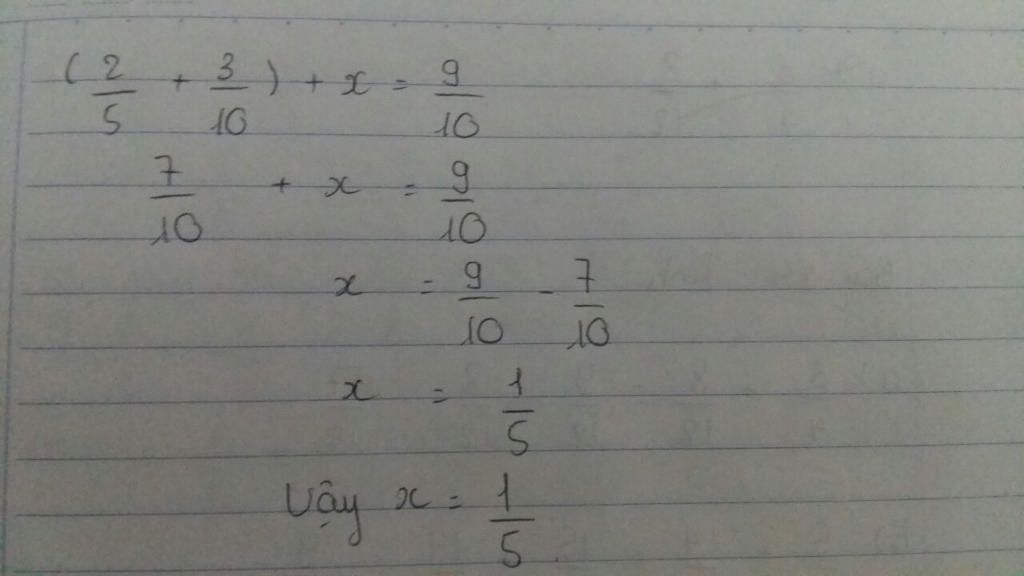 ( 2/5 + 3/10 ) + x = 9/10
7/10 + x = 9/10
x = 9/10 - 7/10
x = 1/5
Vậy x = 1/5